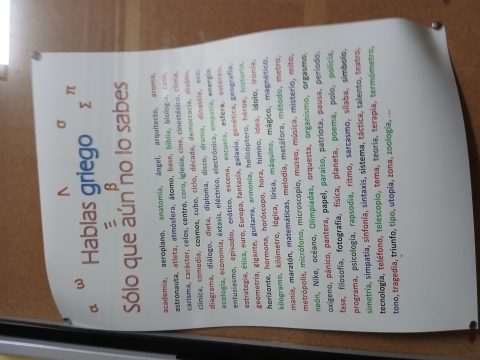 α ω λ σ Σ π
Hablas griego
Ξ β
Sólo que aún no lo sabes
academia, aeroplano, anatomía, ángel, arquitecto, aroma,
astronauta, atleta, atmósfera, átomo, base, biblia, biología,
carisma, carácter, celos, centro, cine, cinestésico, clima,
clínica, comedia, cosmos, cubo, ciclo, década, democracia, diablo,
diagrama, diálogo, dieta, diploma, disco, drama, dinastía, eco,
ecología, economía, éxtasis, eléctrico, electrónica, energía
entusiasmo, episodio, erótico, escena, esfera, estéreo,
estrategia, ética, euro, Europa, fantasía, galaxia, genética, geografía,
geometría, gigante, guitarra, armonía, helicóptero, héroe, historia,
horizonte, hormona, horóscopo, hora, himno, idea, ídolo, ironía,
kilogramo, kilómetro, lógica, lírica, máquina, mágico, magnético,
manía, maratón, matemáticas, melodía, metáfora, método, metro,
metrópolis, micrófono, microscopio, museo, música, misterio, mito,
neón, Nike, océano, Olimpiadas, orquesta, organismo, orgasmo,
oxígeno, pánico, pantera, papel, paraíso, patriota, pausa, período,
fase, filosofía, fotografía, física, planeta, poema, polo, policía,
programa, psicología, rapsodia, ritmo, sarcasmo, sílaba, símbolo,
simetría, simpatía, sinfonía, sintaxis, sistema, táctica, talento, teatro,
tecnología, teléfono, telescopio, tema, teoría, terapia, termómetro,
tono, tragedia, triunfo, tipo, utopía, zona, zoología, ...